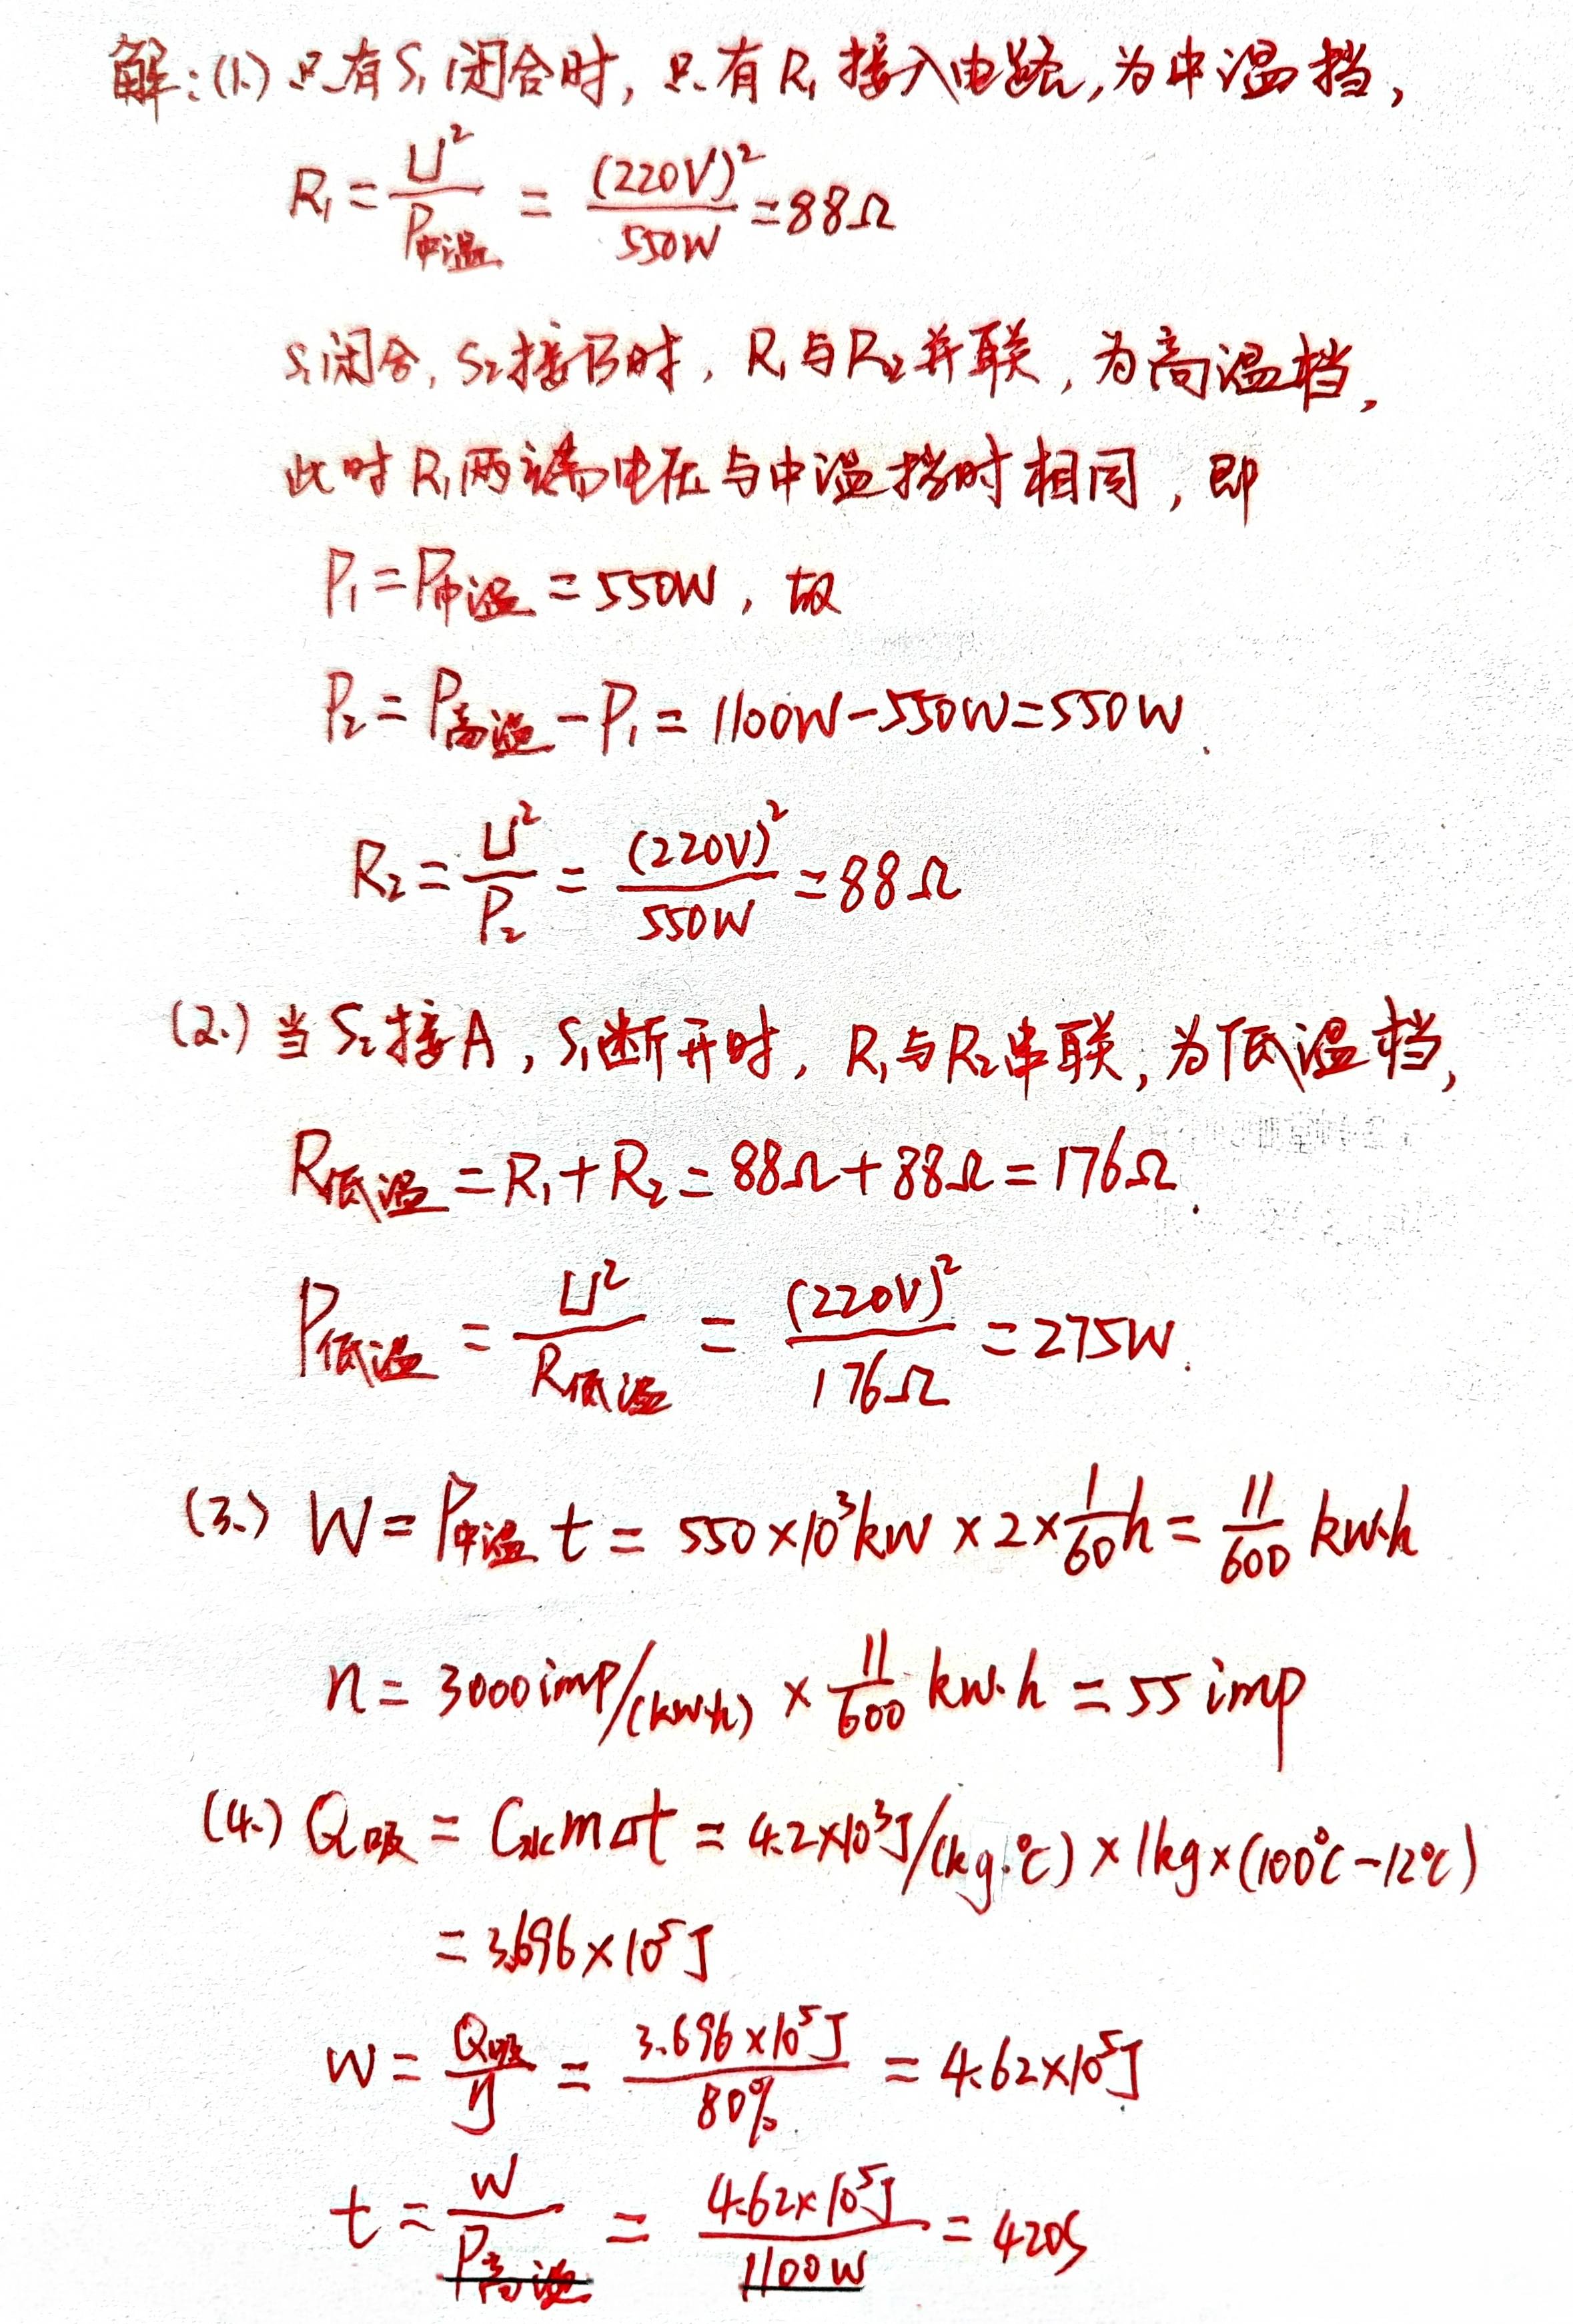 解:(1.)只有S₁闭合时,只有R₁接入电路,为中温挡,
R₁=U²/P中温=(220V)²/550W=88Ω
S₁闭合,S₂接B时,R₁与R₂并联,为高温档,
此时R₁两端电压与中温挡时相同,即
P₁=P中温=550W,故
P₂=P高温-P₁=1100W-550W=550W.
R₂=U²/P₂=(220V)²/550W=88Ω
(2.)当S₂接A,S₁断开时,R₁与R₂串联,为低温档,
R低温=R₁+R₂=88Ω+88Ω=176Ω.
P低温=U²/R低温=(220V)²/176Ω=275W.
(3.)W=P中温t=550×10³kW×2×1/60h=11/600kw·h
n=3000imp/(kw·h)×11/600kw·h=55imp
(4.)Q吸=C水mΔt=4.2×10³J/(kg·℃)×1kg×(100℃-12℃)
=3.696×10⁵J
W=Q吸/η=3.696×10⁵J/80%=4.62×10⁵J
t=W/P高温=4.62×10⁵J/1100W=420S